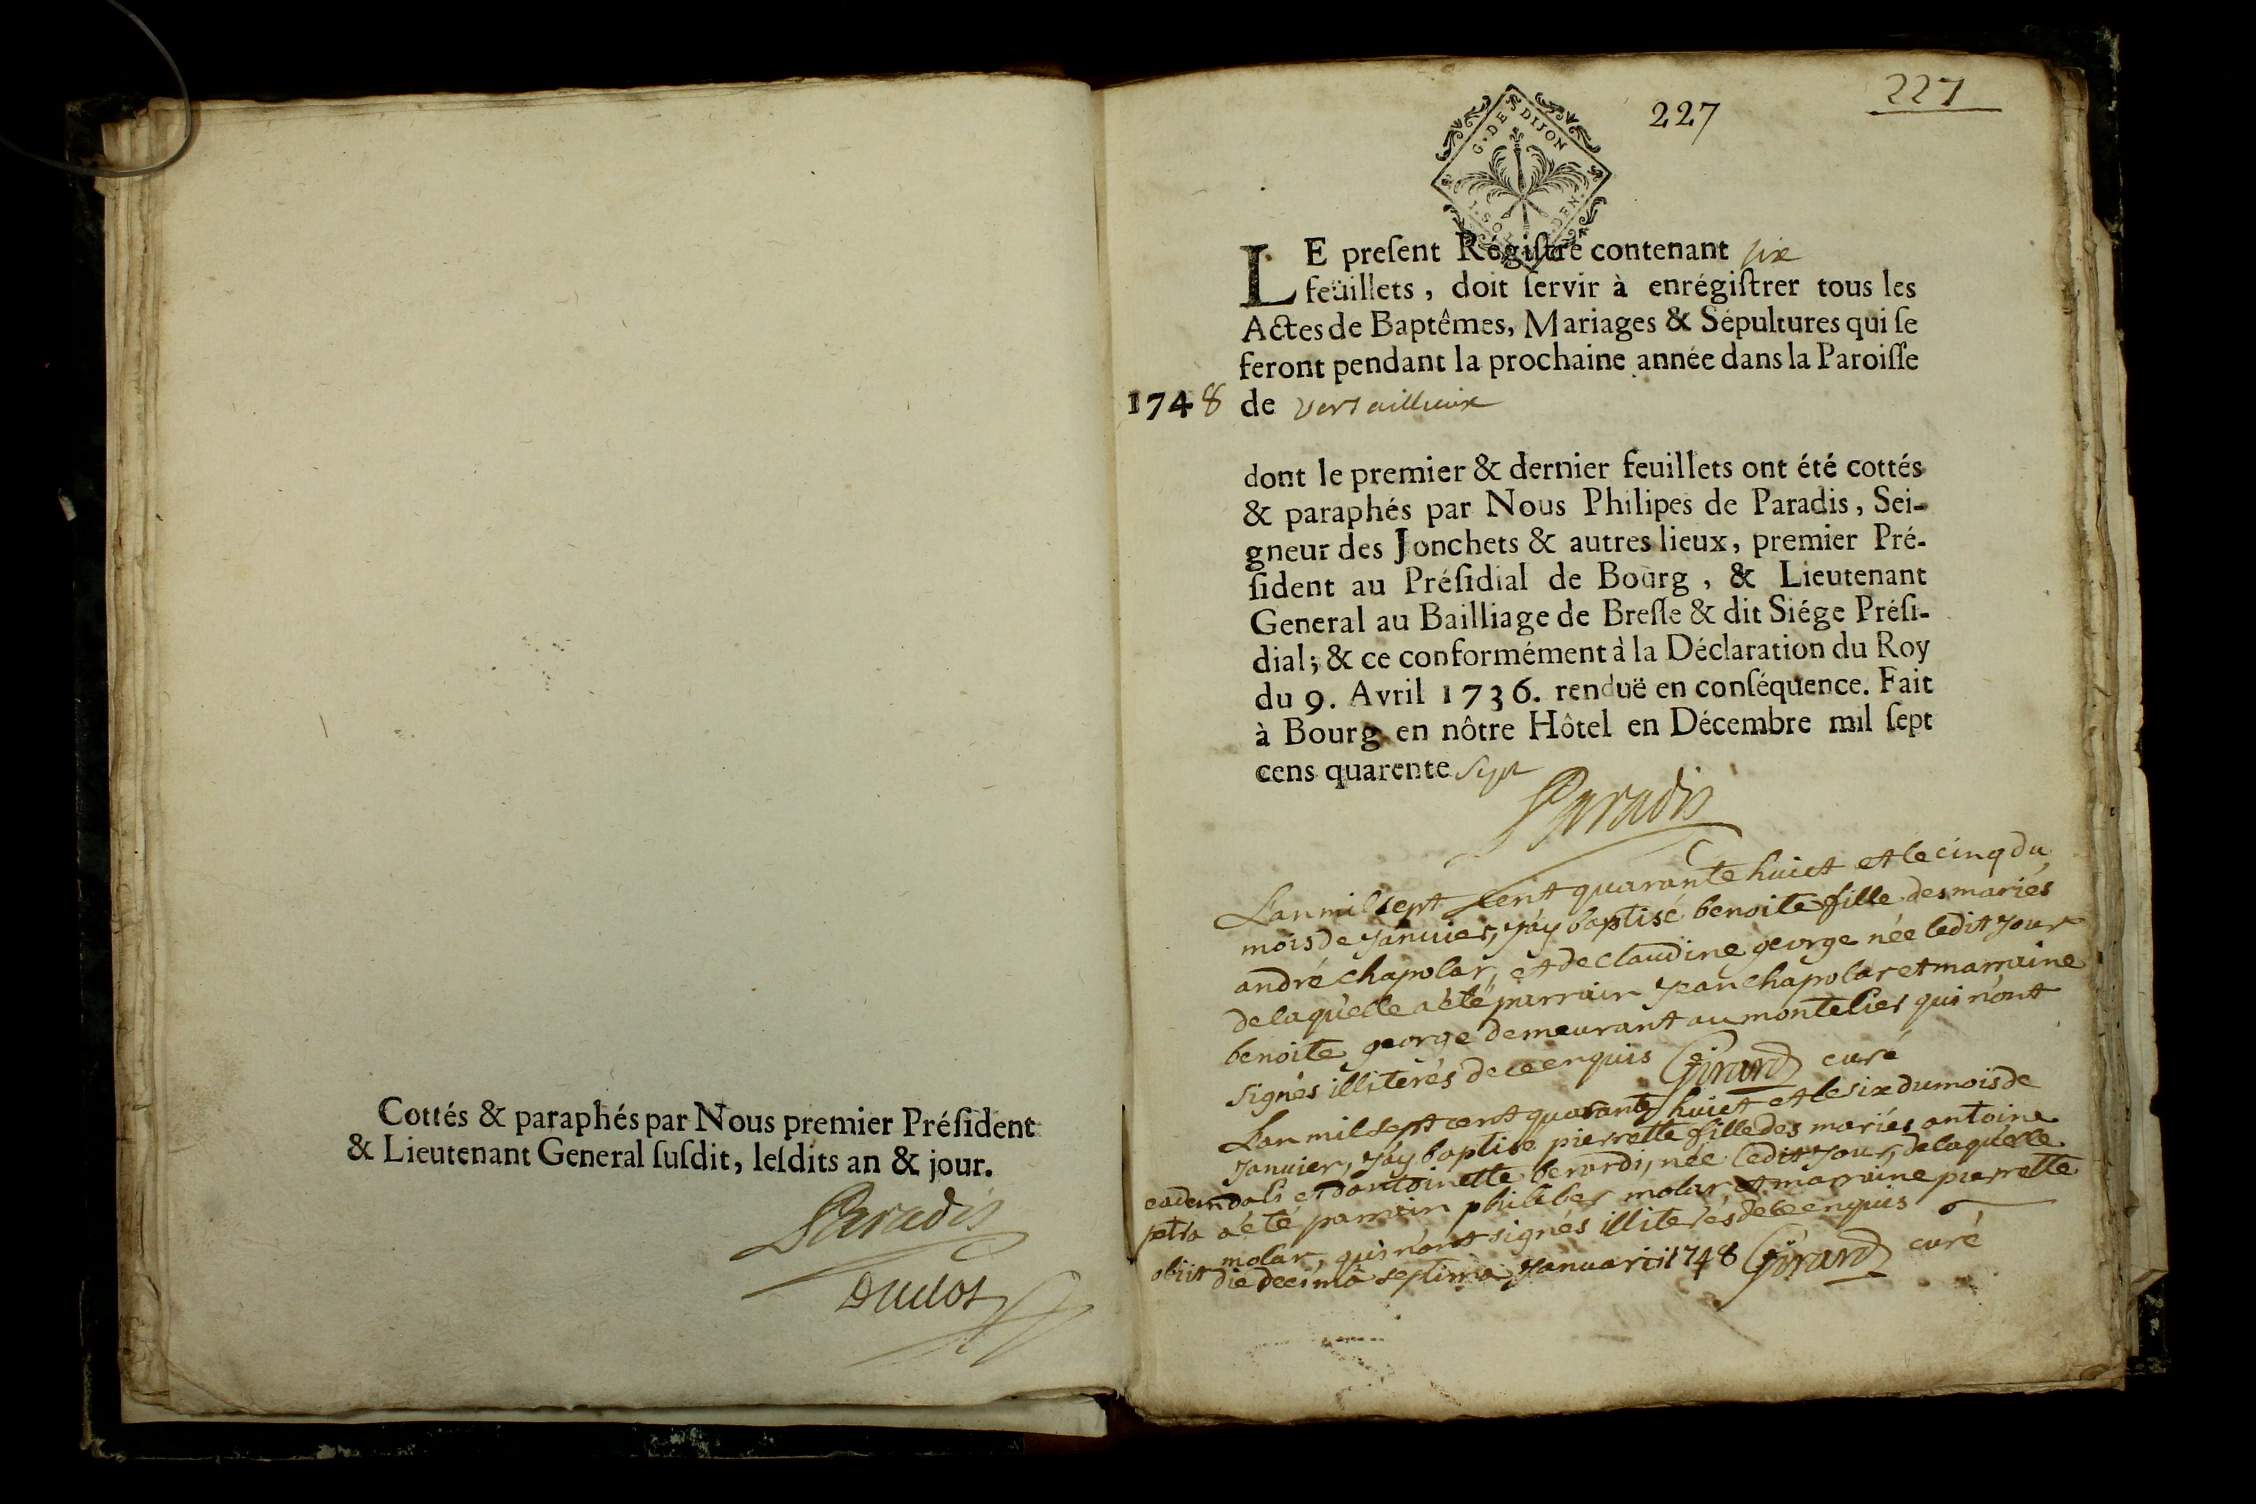 Cottés & paraphés par Nous premier Préſident
& Lieutenant General ſuſdit, leſdits an & jour.
Paradis
227
227
G. DE DIJON
LE preſent Régiſtre contenant six
feüillets, doit ſervir à enrégiſtrer tous les
Actes de Baptêmes, Mariages & Sépultures qui ſe
feront pendant la prochaine année dans la Paroiſſe
1748 de Versaillieux
dont le premier & dernier feuillets ont été cottés
& paraphés par Nous Philipes de Paradis, Sei-
gneur des Jonchets & autres lieux, premier Pré-
ſident au Préſidial de Bourg, & Lieutenant
General au Bailliage de Breſſe & dit Siége Préſi-
dial; & ce conformément à la Déclaration du Roy
du 9. Avril 1736. renduë en conſéquence. Fait
à Bourg en nôtre Hôtel en Décembre mil ſept
cens quarente sept
Paradis
Lan mil sept cent quarante huict et le cinq du
mois de janvier, j'ay baptisé benoite fille des mariés
andré chapolar, et de claudine george née ledit jour
de laquelle a été parrain jean chapolar et marraine
benoite george demeurant au montelier qui n'ont
signés illiterés de ce enquis Girard curé
Lan mil sept cent quarante huict et le six du mois de
janvier, j'ay baptisé pierrette fille des mariés antoine
et d'antoinette berardi, née ledit jour, de laquelle
a été parrain philiber molar et marraine pierrette
molar, qui n'ont signés illiterés de ce enquis
obiit die decima septima januarii 1748 Girard curé